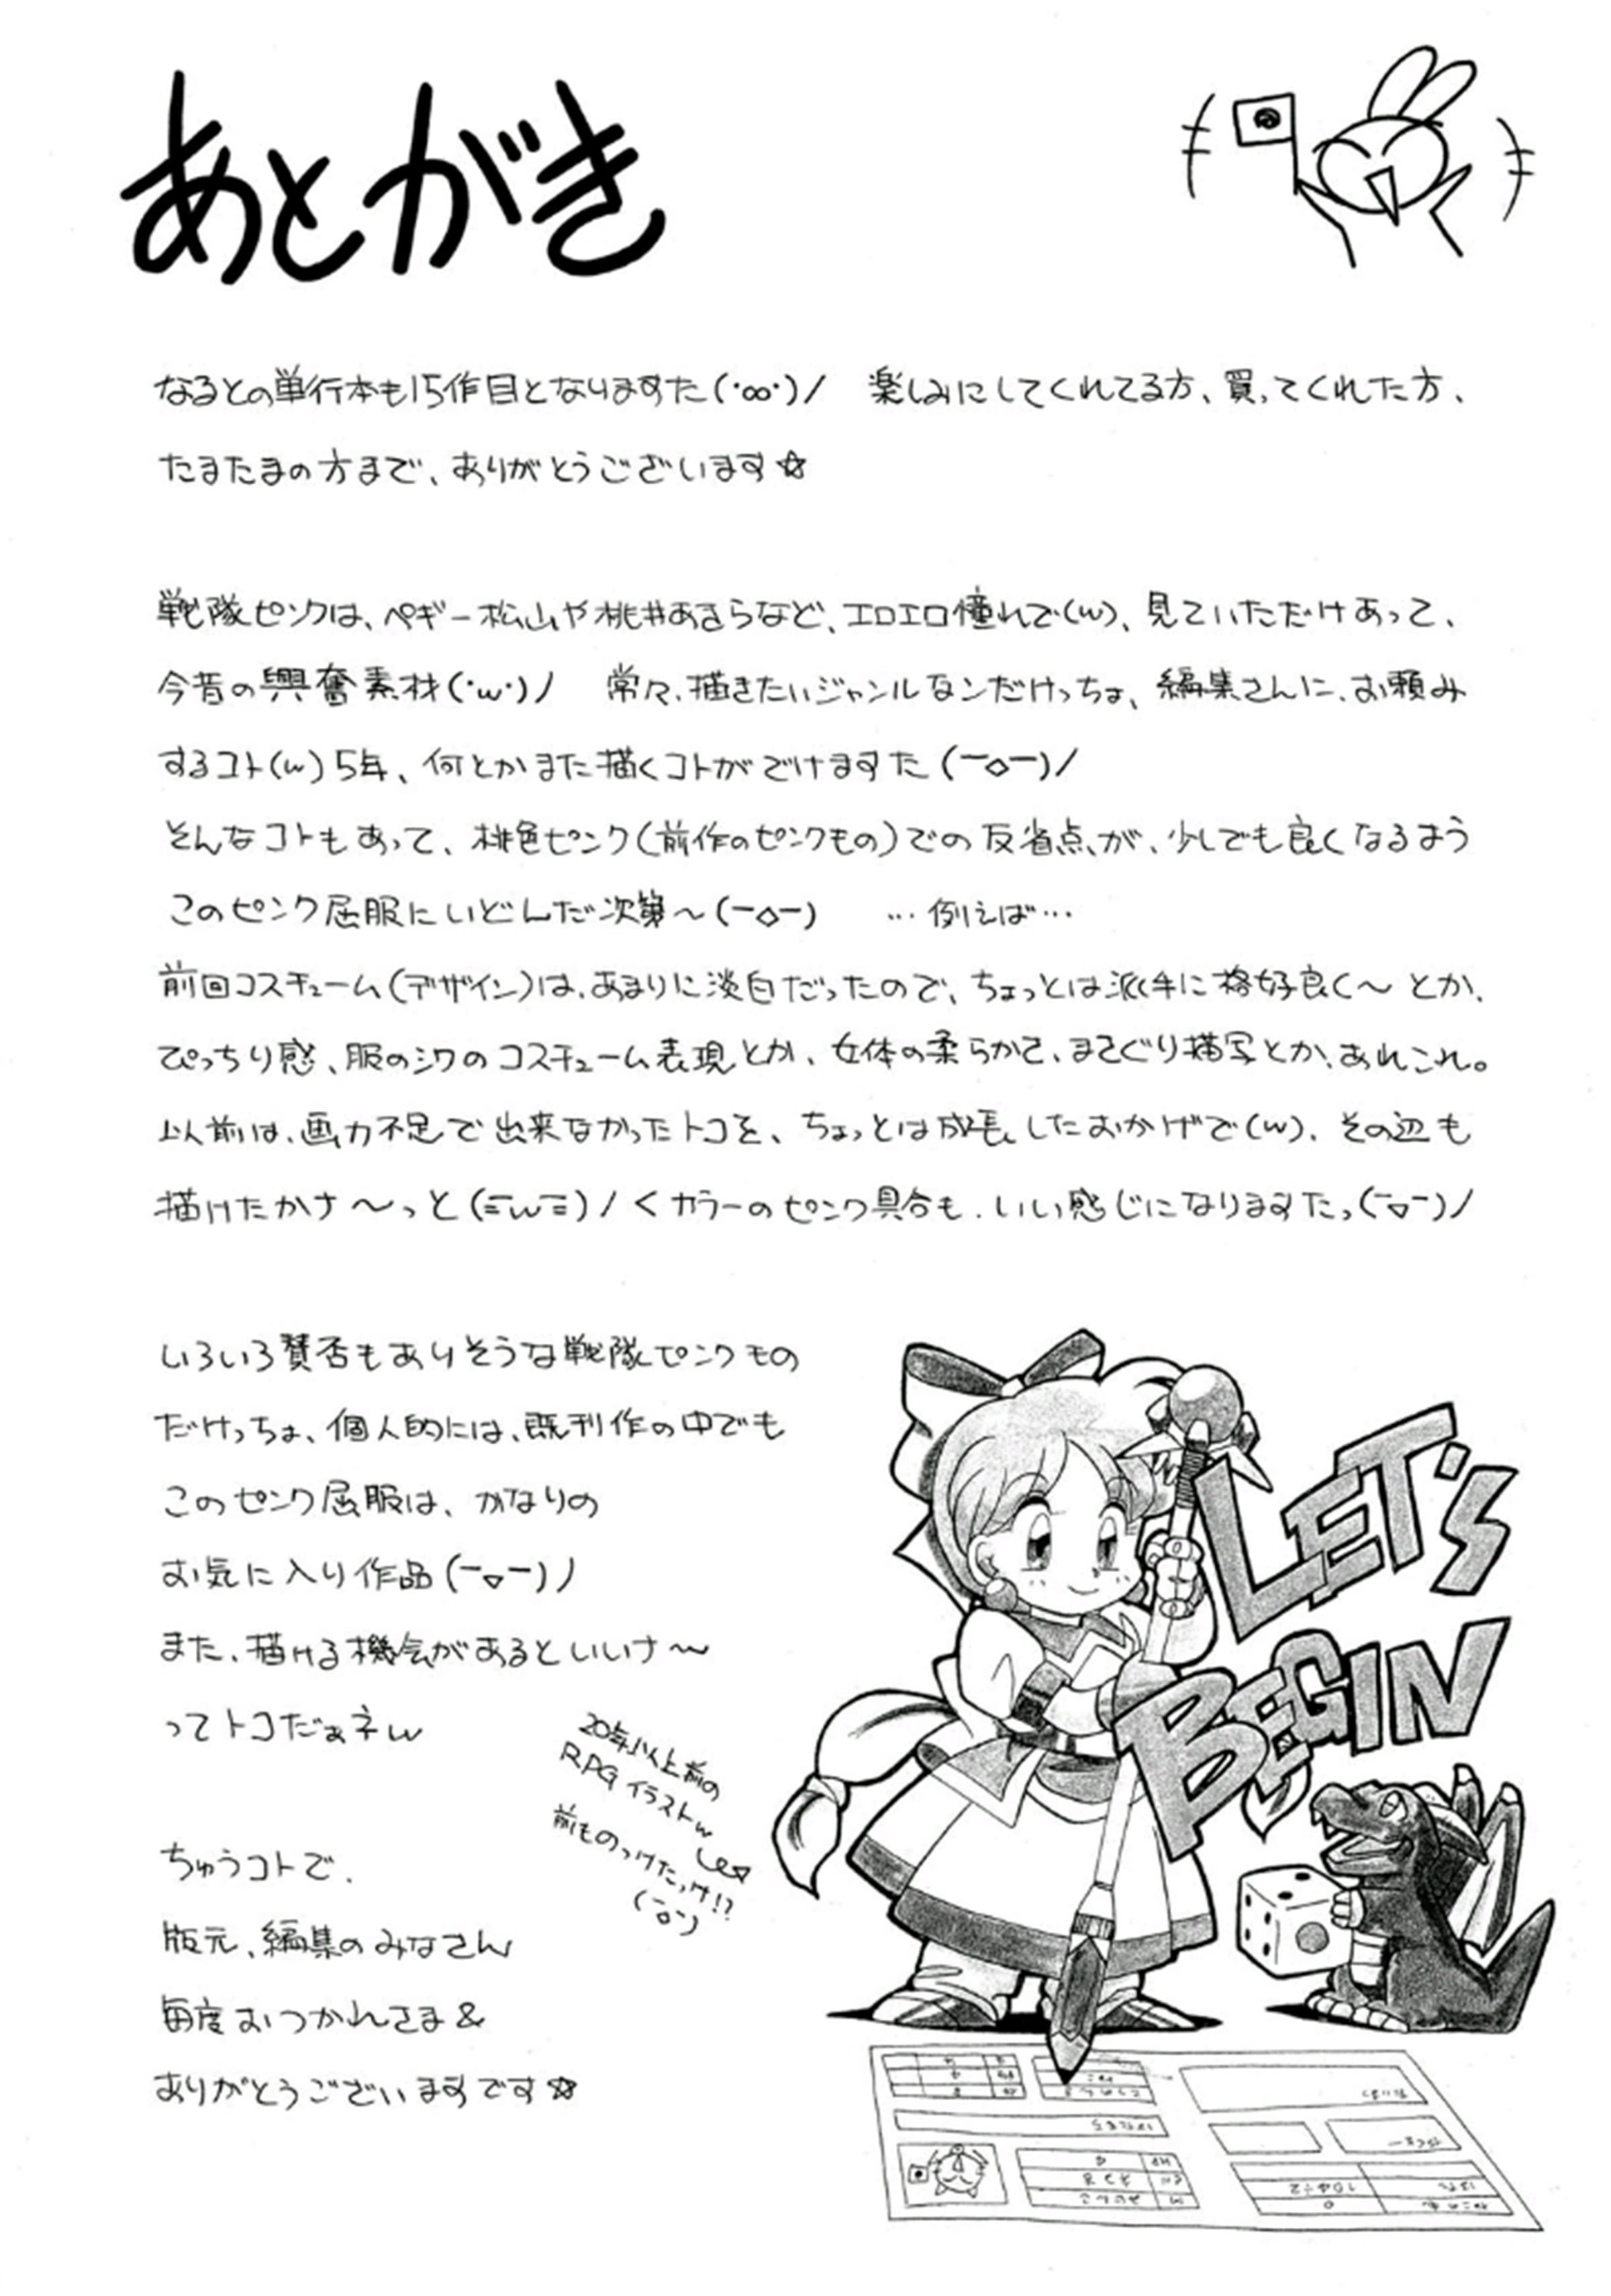 あとがき
なるとの単行本も15作目となりますた(・∞・)/　楽しみにしてくれてる方、買ってくれた方、
たまたまの方まで、ありがとうございます☆
戦隊ピンクは、ペギー松山や桃井あきらなど、エロエロ憧れで(w)、見ていただけあって、
今昔の興奮素材(・w・)ノ　常々、描きたいジャンルなンだけっちょ、編集さんに、お頼み
するコト(w)5年、何とかまた描くコトがでけますた(￣◇￣)/
そんなコトもあって、桃色ピンク(前作のピンクもの)での反省点が、少しでも良くなるよう
このピンク屈服にいどんだ次第～(￣◇￣)　…例えば…
前回コスチューム(デザイン)は、あまりに淡白だったので、ちょっとは派手に格好良く～とか、
ぴっちり感、服のシワのコスチューム表現とか、女体の柔らかさ、まさぐり描写とか、あれこれ。
以前は、画力不足で出来なかったトコを、ちょっとは成長したおかげで(w)、その辺も
描けたかナ～っと(≡w≡)/くカラーのピンク具合も、いい感じになりますたっ(￣▽￣)/
いろいろ賛否もありそうな戦隊ピンクもの
だけっちょ、個人的には、既刊作の中でも
このピンク屈服は、かなりの
お気に入り作品(￣▽￣)ノ
また、描ける機会があるといいナ～
ってトコだぁネw
20年以上前の
RPGイラストw
前ものっけたっけ!?
(￣ロ￣)
ちゅうコトで、
版元、編集のみなさん
毎度おつかれさま&
ありがとうございますです☆
LET'S
BEGIN